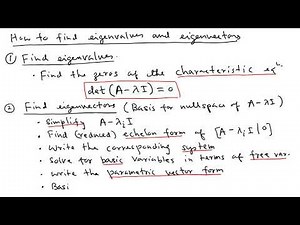 How to find eigenvalues and eigenvectors
① Find eigenvalues.
• Find the zeros of the characteristic eqⁿ.
det (A-λI) = 0
② Find eigenvectors (Basis for nullspace of A-λI)
• Simplify A-λᵢI
• Find (reduced) echelon form of [A-λᵢI | 0]
• Write the corresponding system
• Solve for basic variables in terms of free var.
• Write the parametric vector form
• Basi